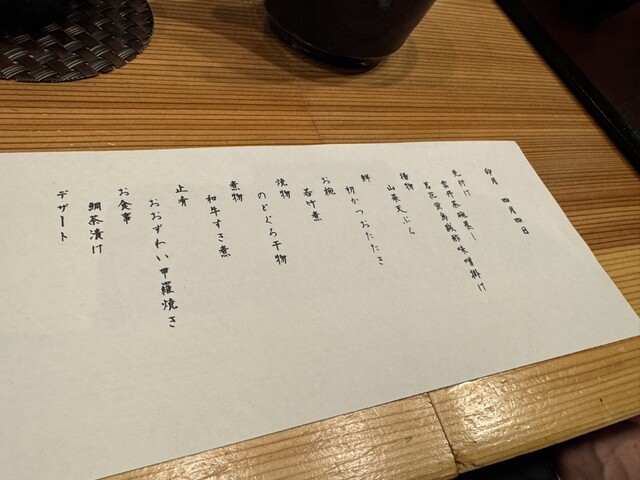 卯月 四月四日
先付け
雲丹茶碗蒸し
若花蛍烏賊酢味噌掛け
揚物
山菜天ぷら
鮮
初かつおたたき
お椀
若竹煮
焼物
のどぐろ干物
煮物
和牛すき煮
止肴
おおずわい甲羅焼き
お食事
鯛茶漬け
デザート